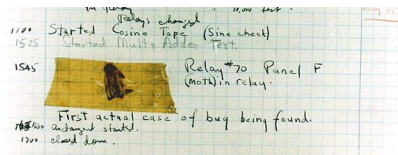 Relays changed
1100 Started Cosine Tape (Sine check)
1525 Started Mult+Adder Test.
1545 Relay #70 Panel F
(Moth) in relay.
First actual case of bug being found.
1630 started.
1700 closed down.